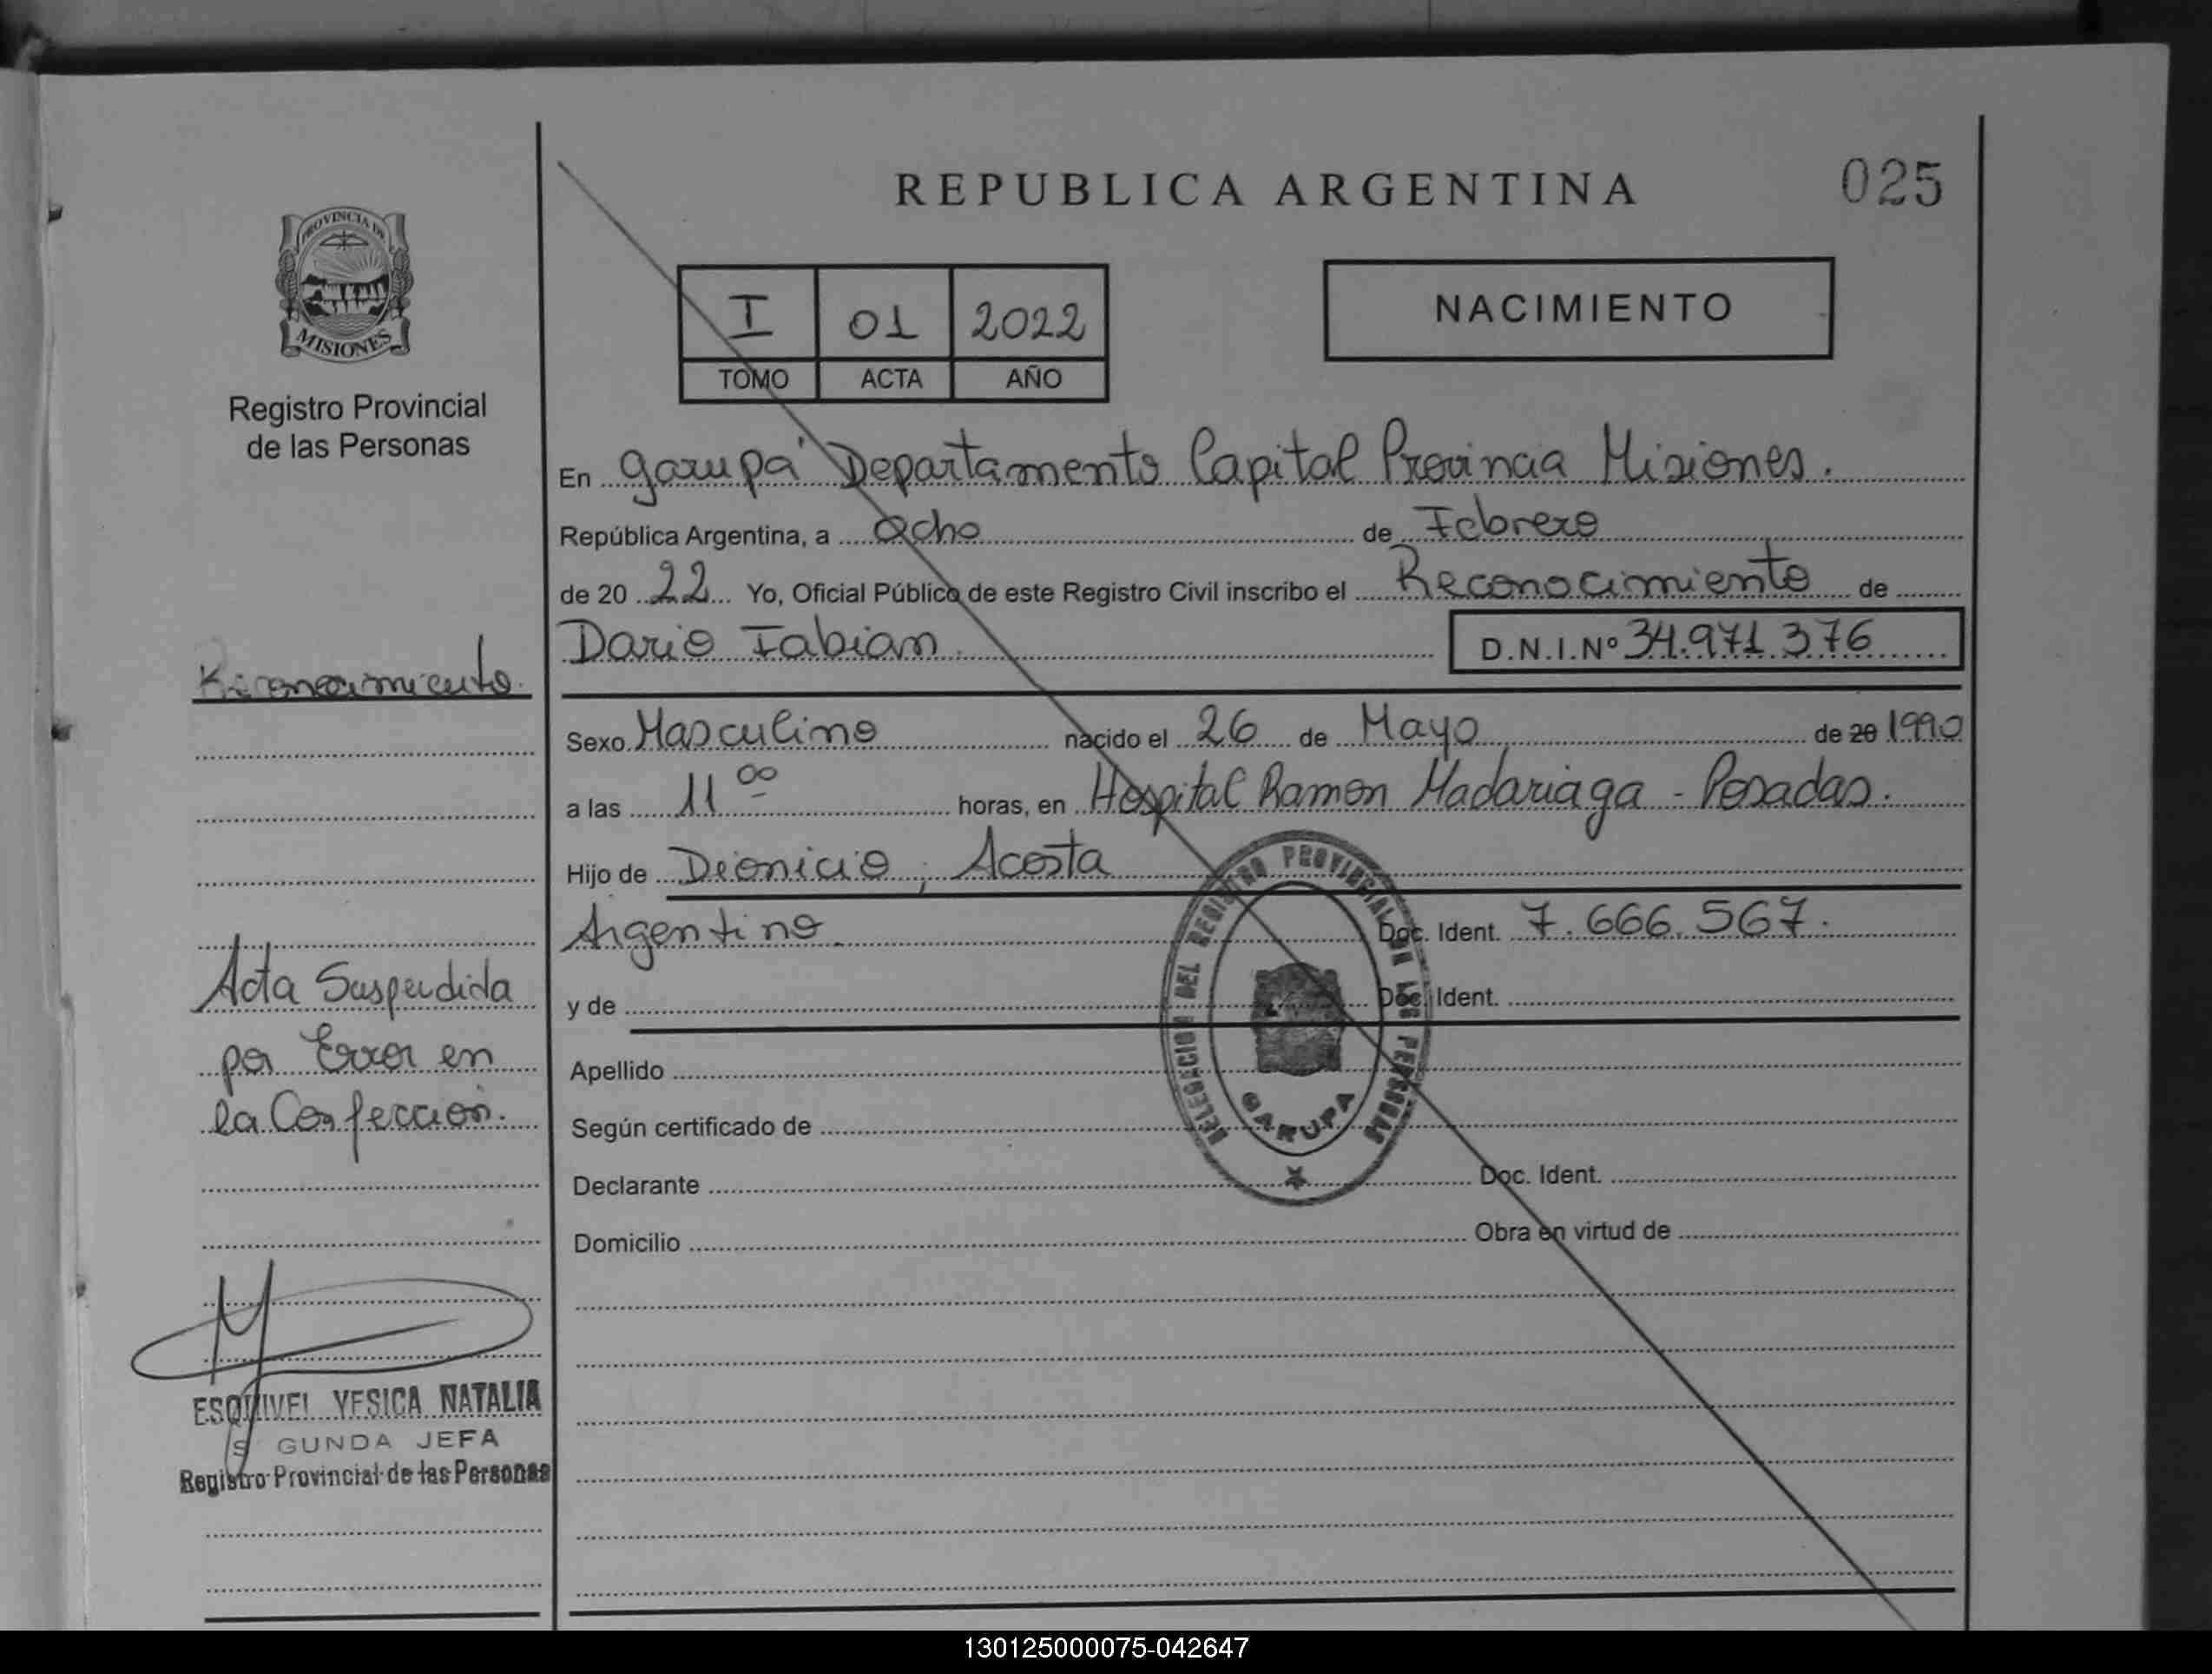 REPUBLICA ARGENTINA
025
PROVINCIA DE
MISIONES
Registro Provincial
de las Personas
I 01 2022
TOMO ACTA AÑO
NACIMIENTO
En Garupá Departamento Capital Provincia Misiones.
República Argentina, a Ocho de Febrero
de 20 22 Yo, Oficial Público de este Registro Civil inscribo el Reconocimiento de
Dario Fabian. D.N.I.Nº 34.971.376
Reconocimiento.
Sexo Masculino nacido el 26 de Mayo de 20 1990
a las 11 00 horas, en Hospital Ramon Madariaga - Posadas.
Hijo de Dionicio, Acosta
Argentino. Doc. Ident. 7.666.567.
y de Doc. Ident.
Apellido
Según certificado de
Declarante Doc. Ident.
Domicilio Obra en virtud de
Acta Suspendida
por Error en
la Confección.
DELEGACION DEL REGISTRO PROVINCIAL DE LAS PERSONAS
GARUPA
ESQUIVEL YESICA NATALIA
S GUNDA JEFA
Registro Provincial de las Personas
130125000075-042647